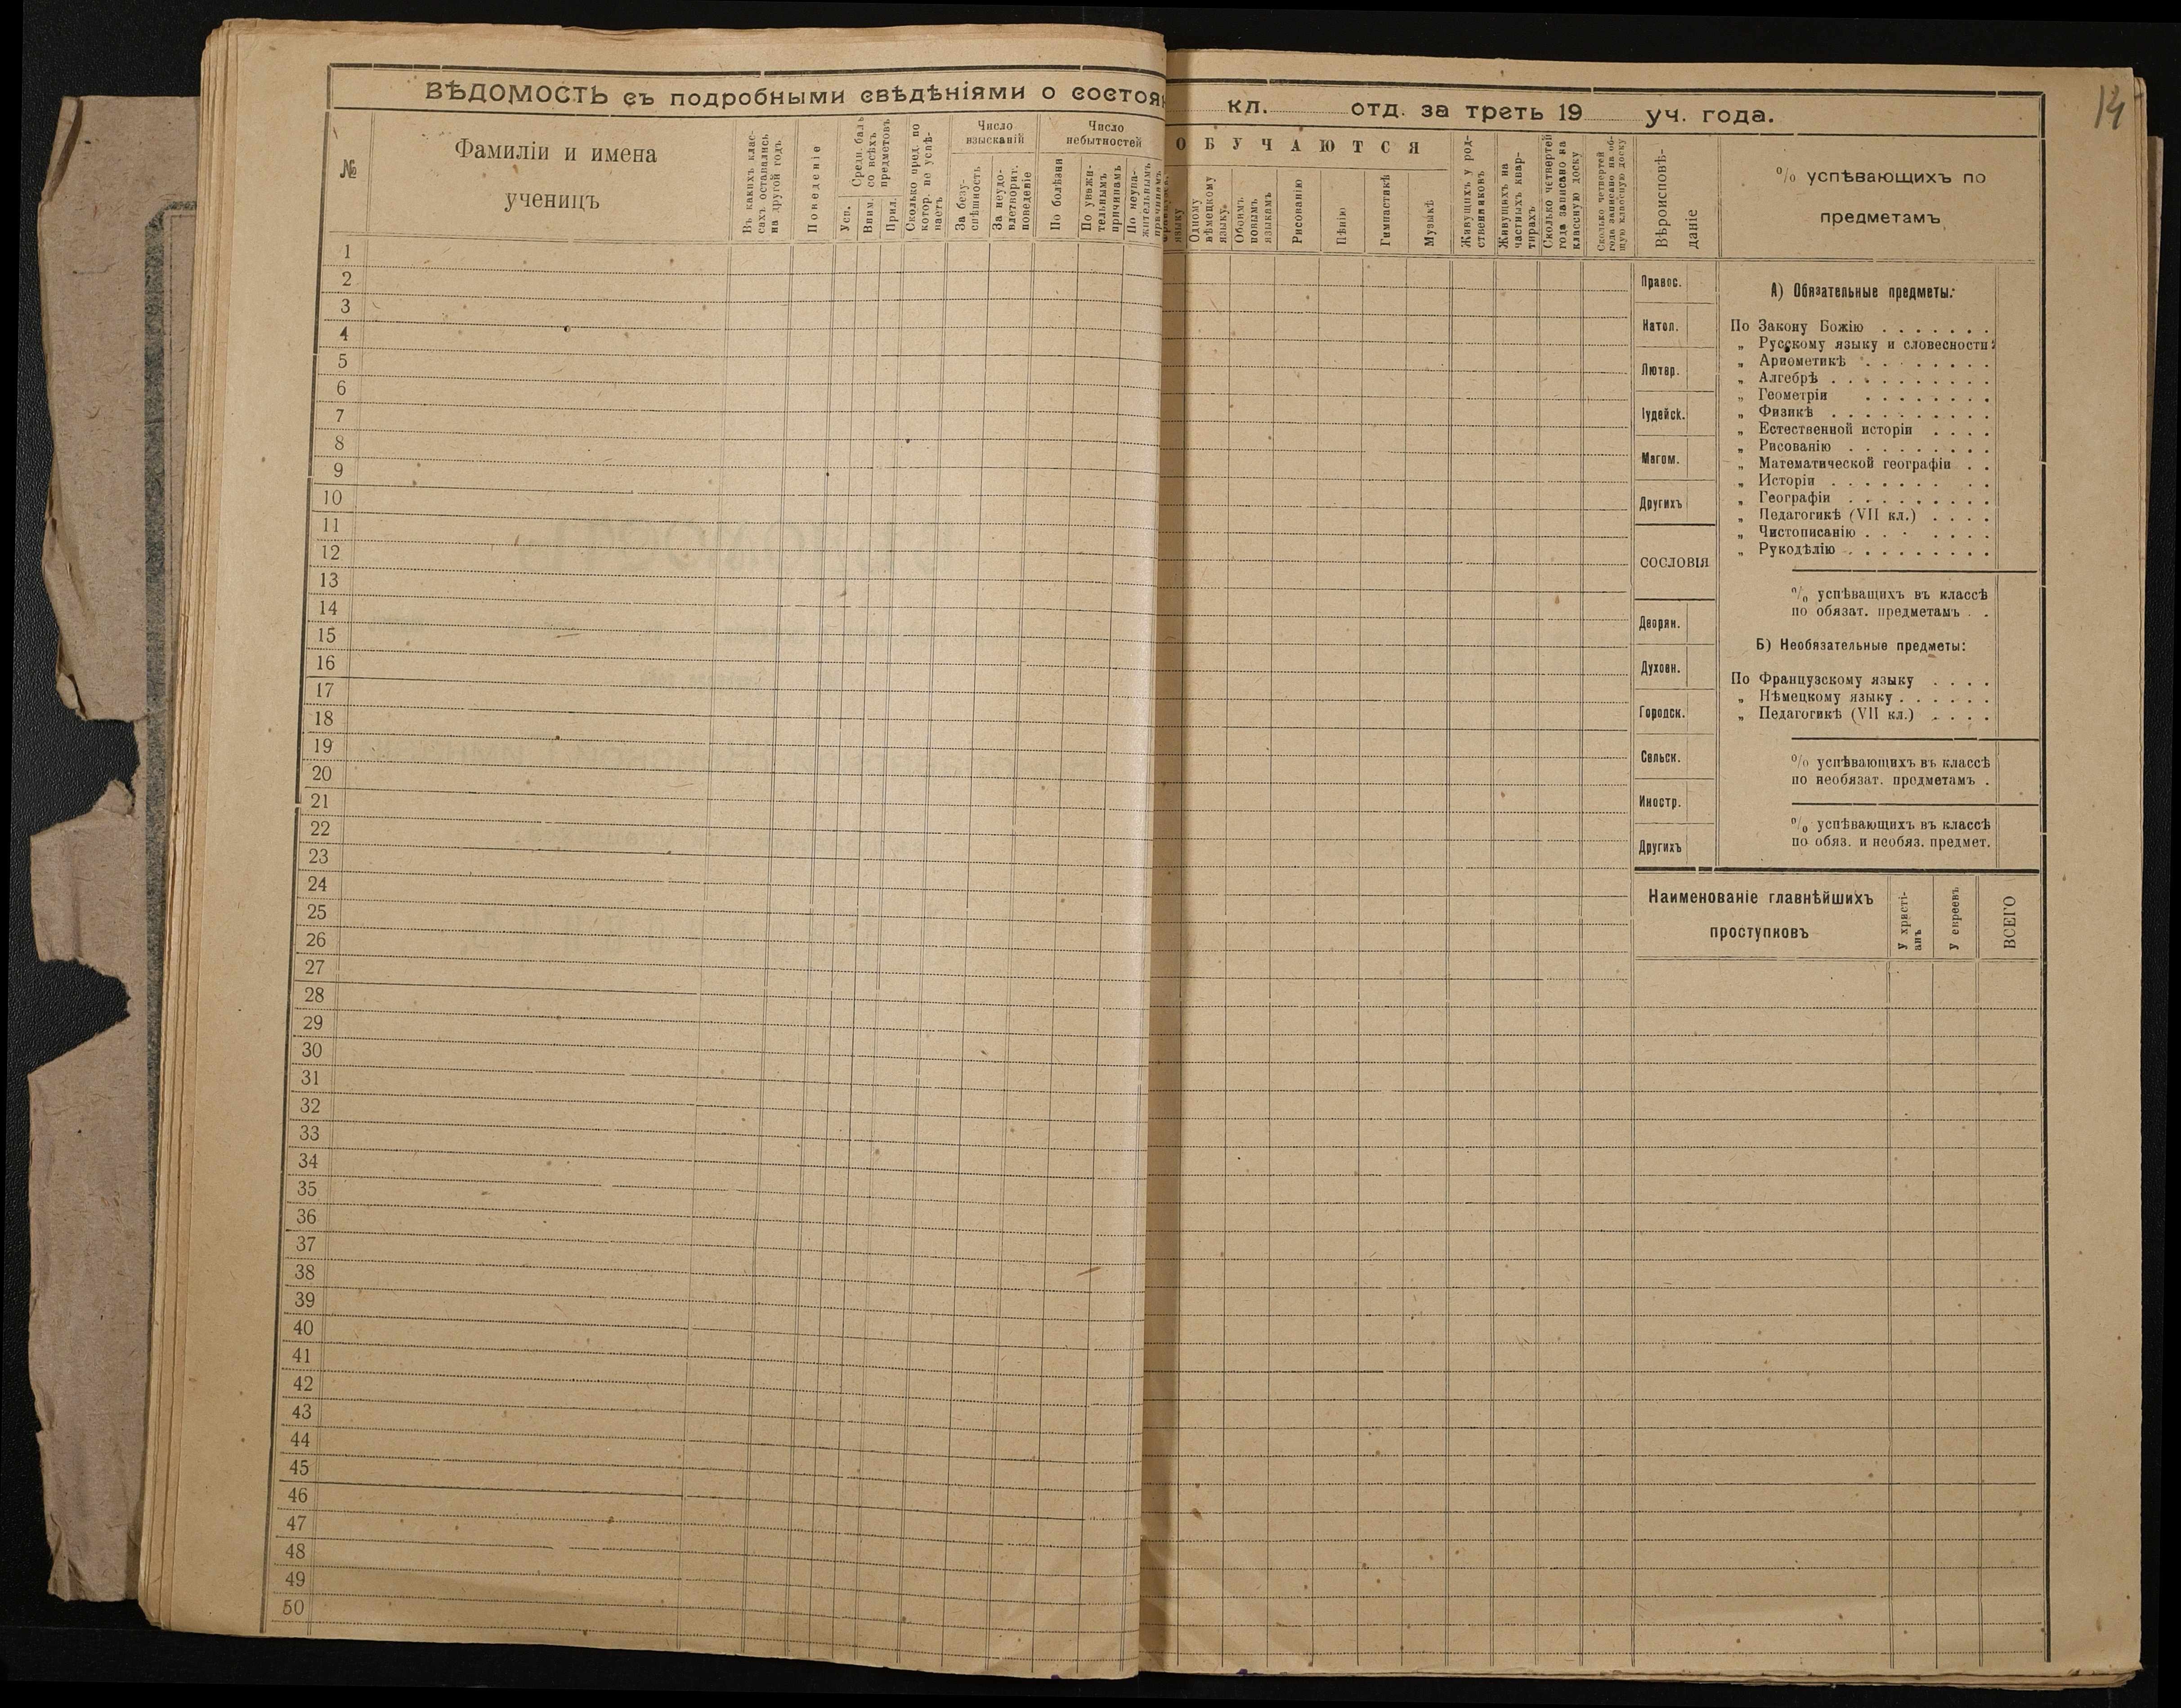 14
ВѢДОМОСТЬ съ подробными свѣдѣніями о состоян
кл. отд. за треть 19 уч. года.
№
Фамиліи и имена
ученицъ
Въ какихъ клас-
сахъ оставались
на другой годъ
Поведеніе
Средн. баль
со всѣхъ
предметовъ
Усп.
Вним.
Прил.
Сколько пред. по
котор. не успѣ-
ваетъ
Число
взысканій
За безу-
спѣшность
За неудо-
влетворит.
поведеніе
Число
небытностей
По болѣзни
По уважи-
тельнымъ
причинамъ
По неува-
жительнымъ
причинамъ
ОБУЧАЮТСЯ
языку
Одному
нѣмецкому
языку
Обоимъ
новымъ
языкамъ
Рисованію
Пѣнію
Гимнастикѣ
Музыкѣ
Живущихъ у род-
ственниковъ
Живущихъ на
частныхъ квар-
тирахъ
Сколько четвертей
года записано на
классную доску
Сколько четвертей
года записано на об-
щую классную доску
Вѣроисповѣ-
даніе
% успѣвающихъ по
предметамъ
1
2
3
4
5
6
7
8
9
10
11
12
13
14
15
16
17
18
19
20
21
22
23
24
25
26
27
28
29
30
31
32
33
34
35
36
37
38
39
40
41
42
43
44
45
46
47
48
49
50
Правос.
Катол.
Лютер.
Іудейск.
Магом.
Другихъ
СОСЛОВІЯ
Дворян.
Духовн.
Городск.
Сельск.
Иностр.
Другихъ
А) Обязательные предметы:
По Закону Божію . . . . . . .
„ Русскому языку и словесности
„ Ариөметикѣ . . . . . . . .
„ Алгебрѣ . . . . . . . . . .
„ Геометріи . . . . . . . .
„ Физикѣ . . . . . . . . . .
„ Естественной исторіи . . . .
„ Рисованію . . . . . . . . .
„ Математической географіи . .
„ Исторіи . . . . . . . . .
„ Географіи . . . . . . . . .
„ Педагогикѣ (VII кл.) . . . .
„ Чистописанію . . . . . . .
„ Рукодѣлію . . . . . . . . .
% успѣващихъ въ классѣ
по обязат. предметамъ . .
Б) Необязательные предметы:
По Французскому языку . . . .
„ Нѣмецкому языку . . . . . .
„ Педагогикѣ (VII кл.) . . . .
% успѣвающихъ въ классѣ
по необязат. предметамъ .
% успѣвающихъ въ классѣ
по обяз. и необяз. предмет.
Наименованіе главнѣйшихъ
проступковъ
У христі-
анъ
У евреевъ
ВСЕГО